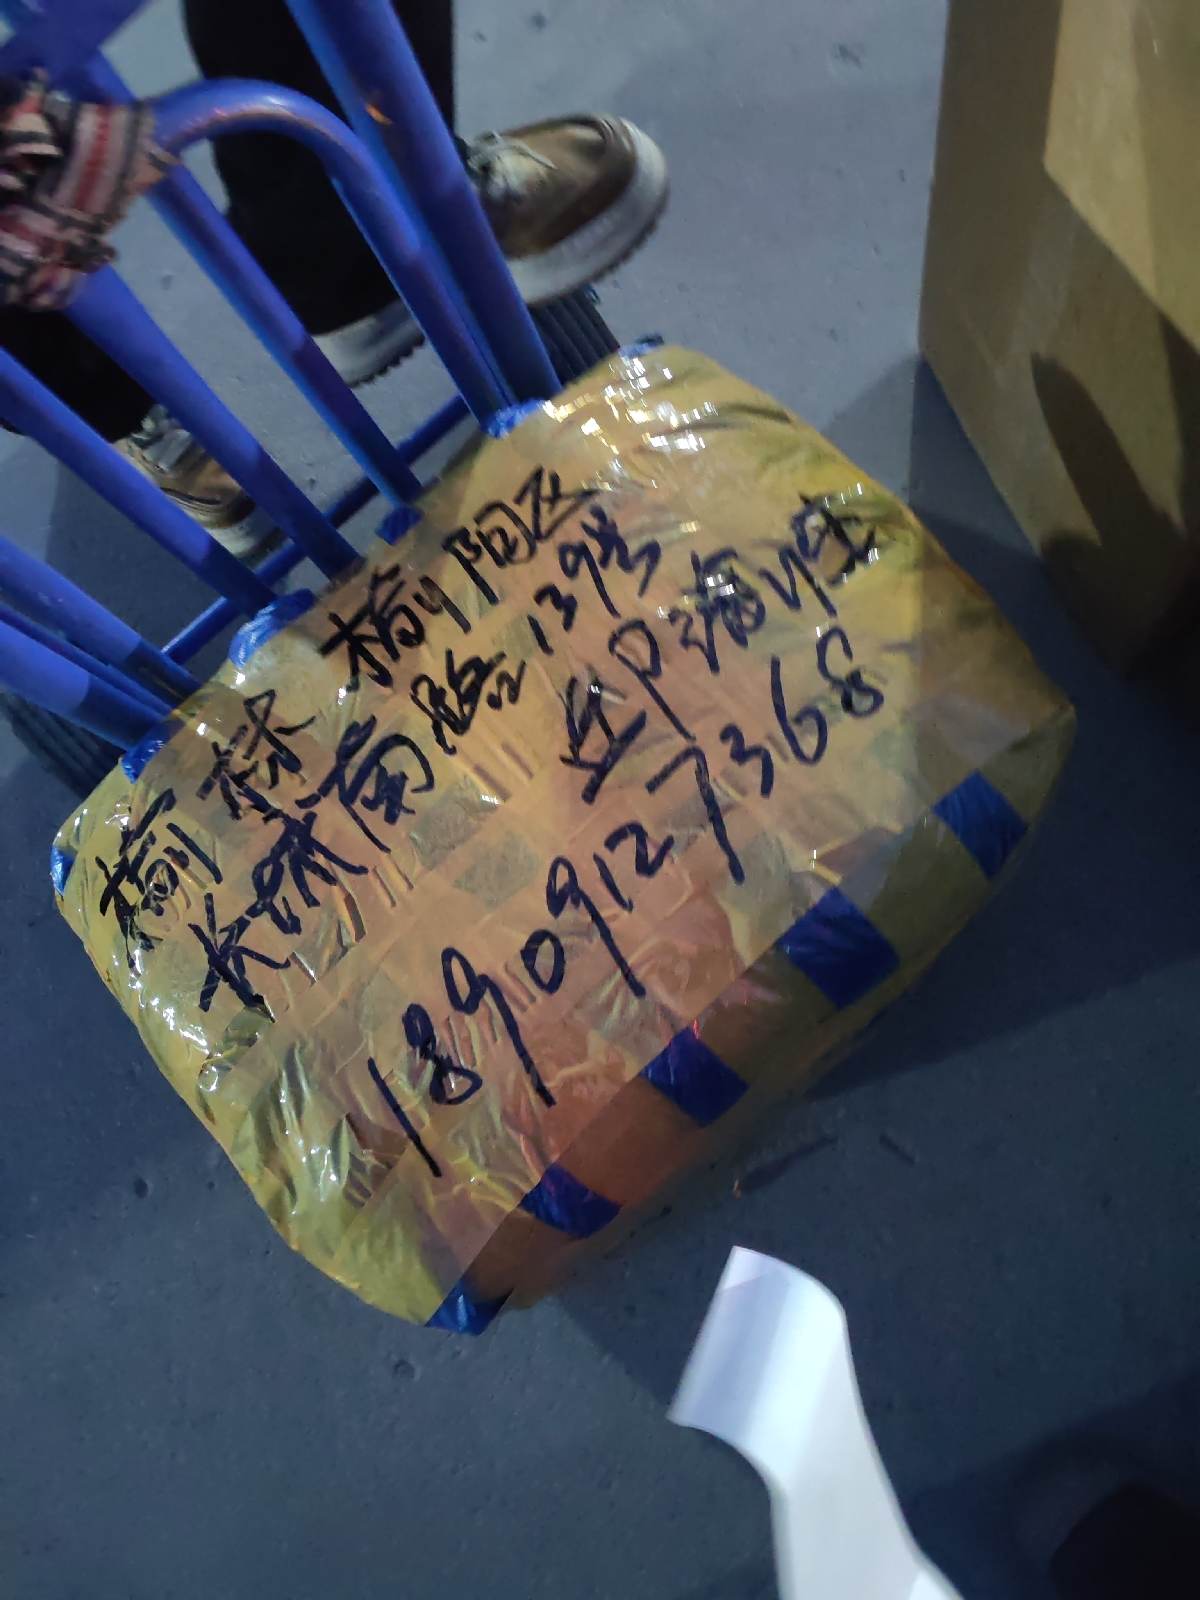 榆林 榆阳区
长城南路139号
18909127368